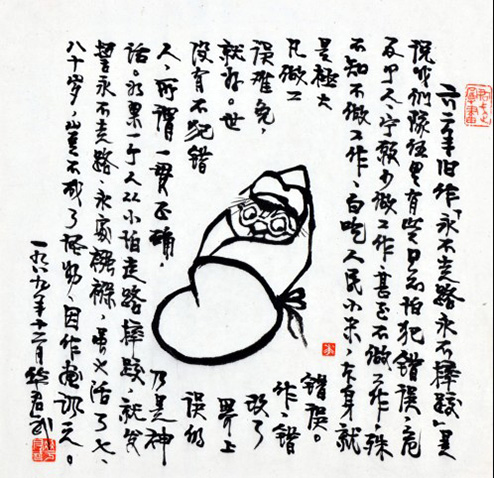 六二年旧作「永不走路永不摔跤」是
说咱们队伍里有些只怕犯错误，危
及个人，宁愿少做工作，甚至不做工作，殊
不知不做工作，白吃人民小米，本身就
是极大错误。
凡做工作，错
误难免，改了
就好。世界上
没有不犯错误的
人，所谓一贯正确，乃是神
话。如果一个人从小怕走路摔跤，就发
誓永不走路，永裹襁褓，活了七、
八十岁，岂不成了怪物，因作画讽之。
一九八九年十二月华君武